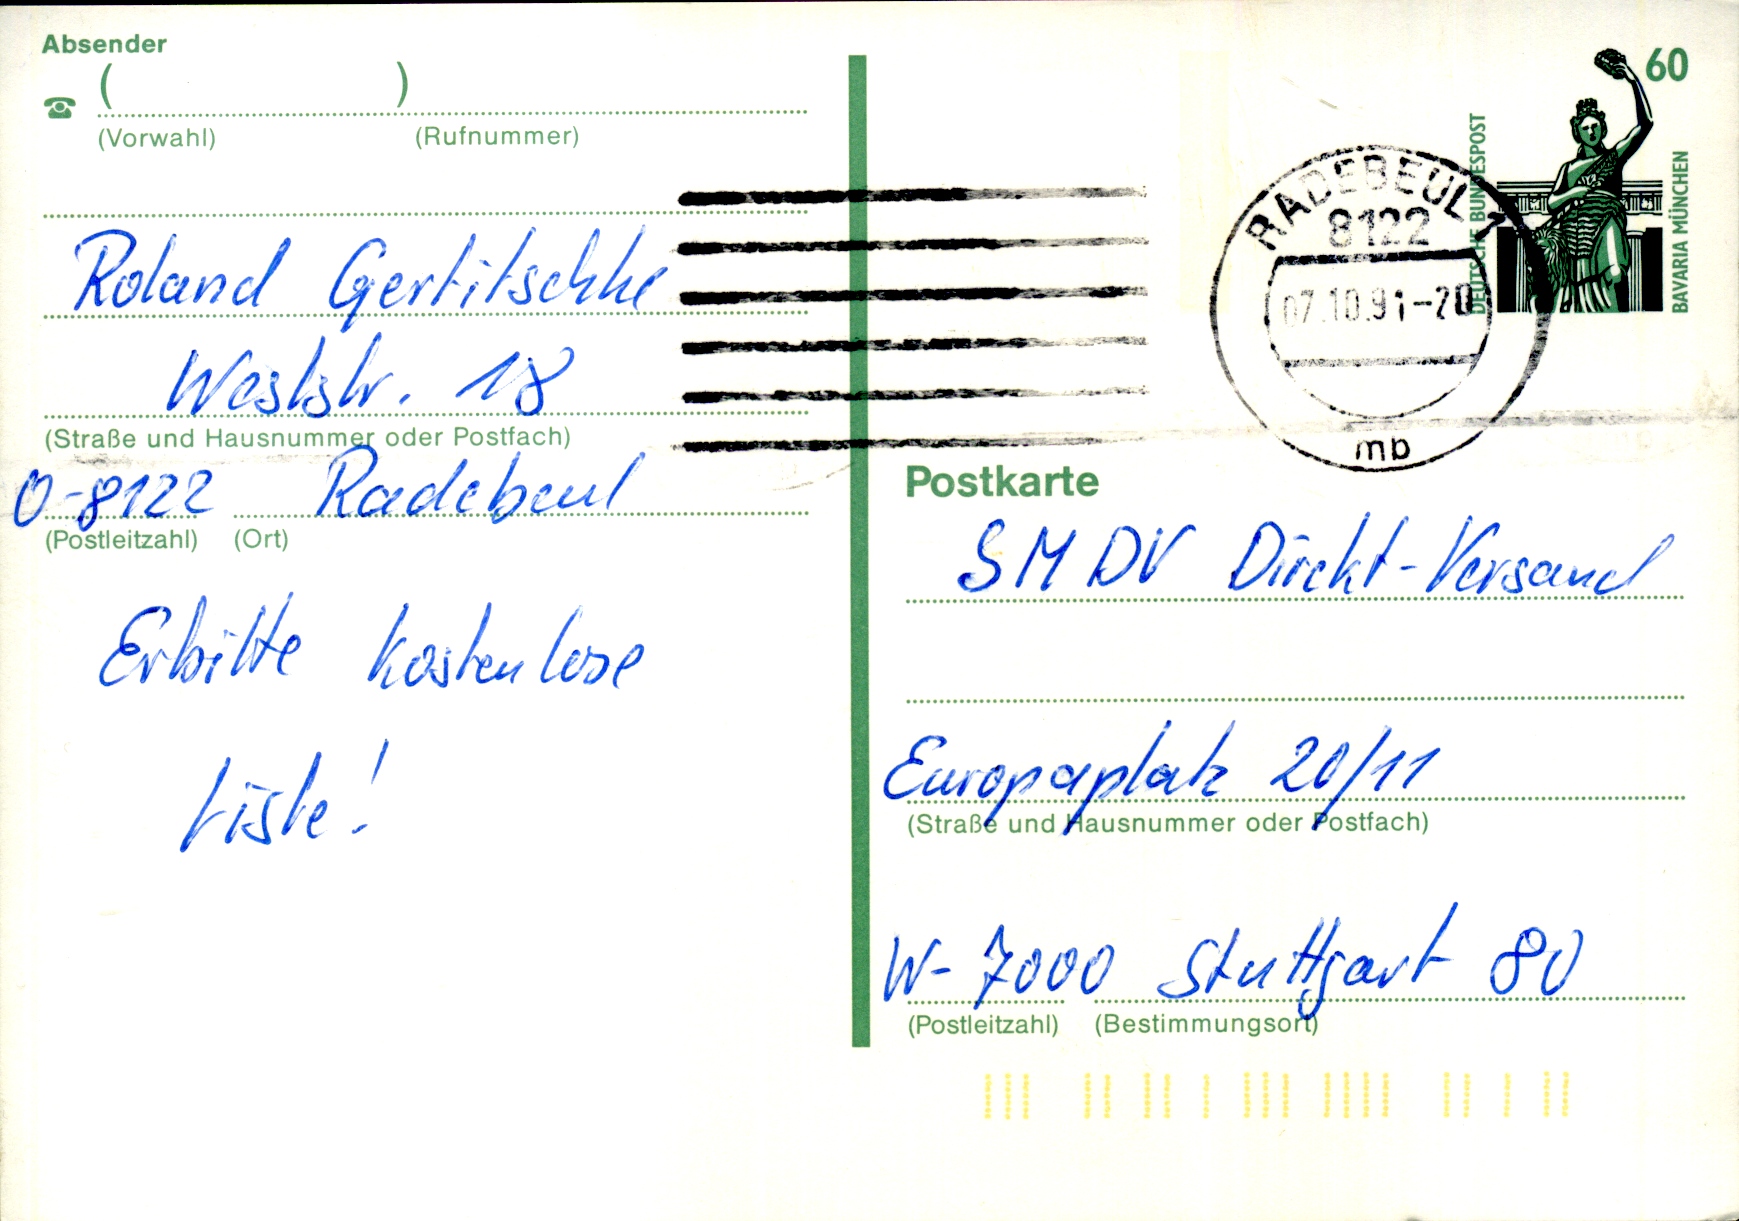 Absender
( )
(Vorwahl) (Rufnummer)
Roland Gertitschke
Weststr. 18
(Straße und Hausnummer oder Postfach)
O-8122 Radebeul
(Postleitzahl) (Ort)
Erbitte kostenlose
Liste!
60
DEUTSCHE BUNDESPOST
BAVARIA MÜNCHEN
RADEBEUL 1
8122
07.10.91-20
mb
Postkarte
SMDV Direkt-Versand
Europaplatz 20/11
(Straße und Hausnummer oder Postfach)
W-7000 Stuttgart 80
(Postleitzahl) (Bestimmungsort)